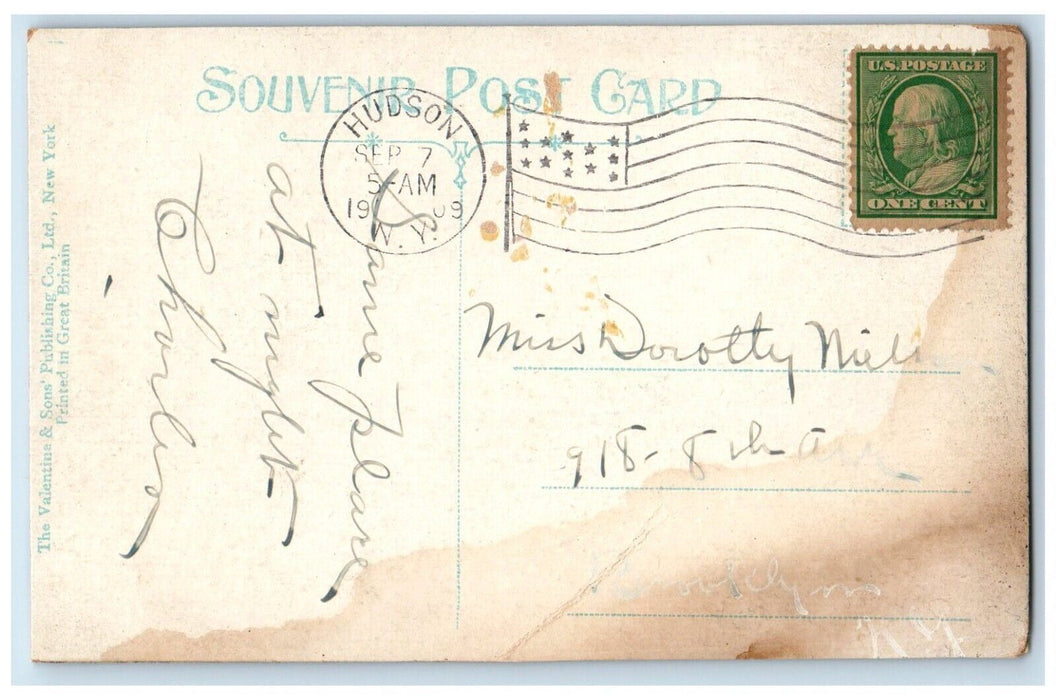 SOUVENIR POST CARD
HUDSON
SEP 7
5-AM
1909
N. Y.
U.S. POSTAGE
ONE CENT
The Valentine & Sons' Publishing Co., Ltd., New York
Printed in Great Britain
Same place
at night
Charles
Miss Dorothy
918-8th Ave
Brooklyn
N Y